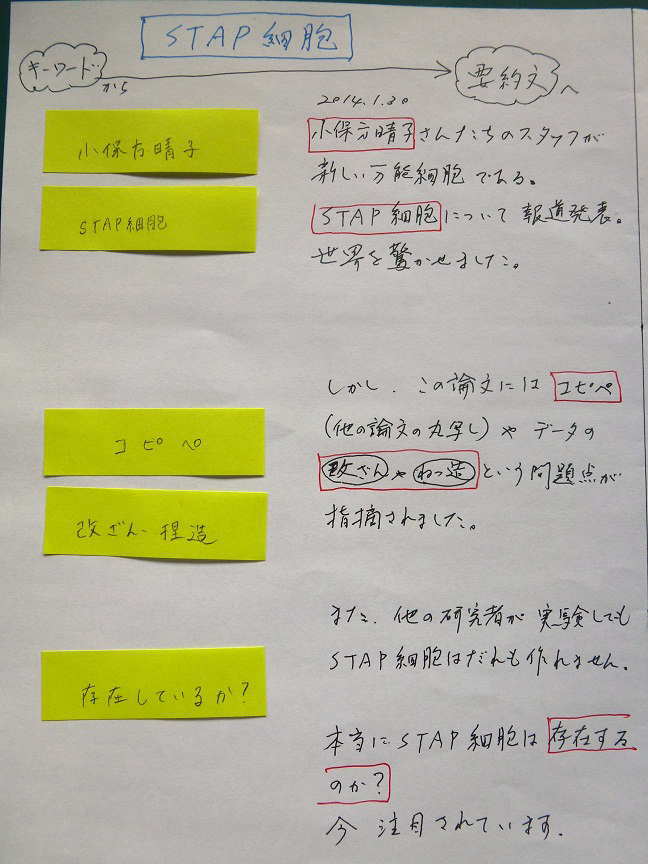 STAP細胞
キーワード
から
要約文
へ
小保方晴子
STAP細胞
コピペ
改ざん・捏造
存在しているか?
2014.1.30
小保方晴子さんたちのスタッフが
新しい万能細胞である。
STAP細胞について報道発表。
世界を驚かせました。
しかし、この論文にはコピペ
(他の論文の丸写し)やデータの
改ざんやねつ造という問題点が
指摘されました。
また、他の研究者が実験しても
STAP細胞はだれも作れません。
本当にSTAP細胞は存在する
のか?
今注目されています.